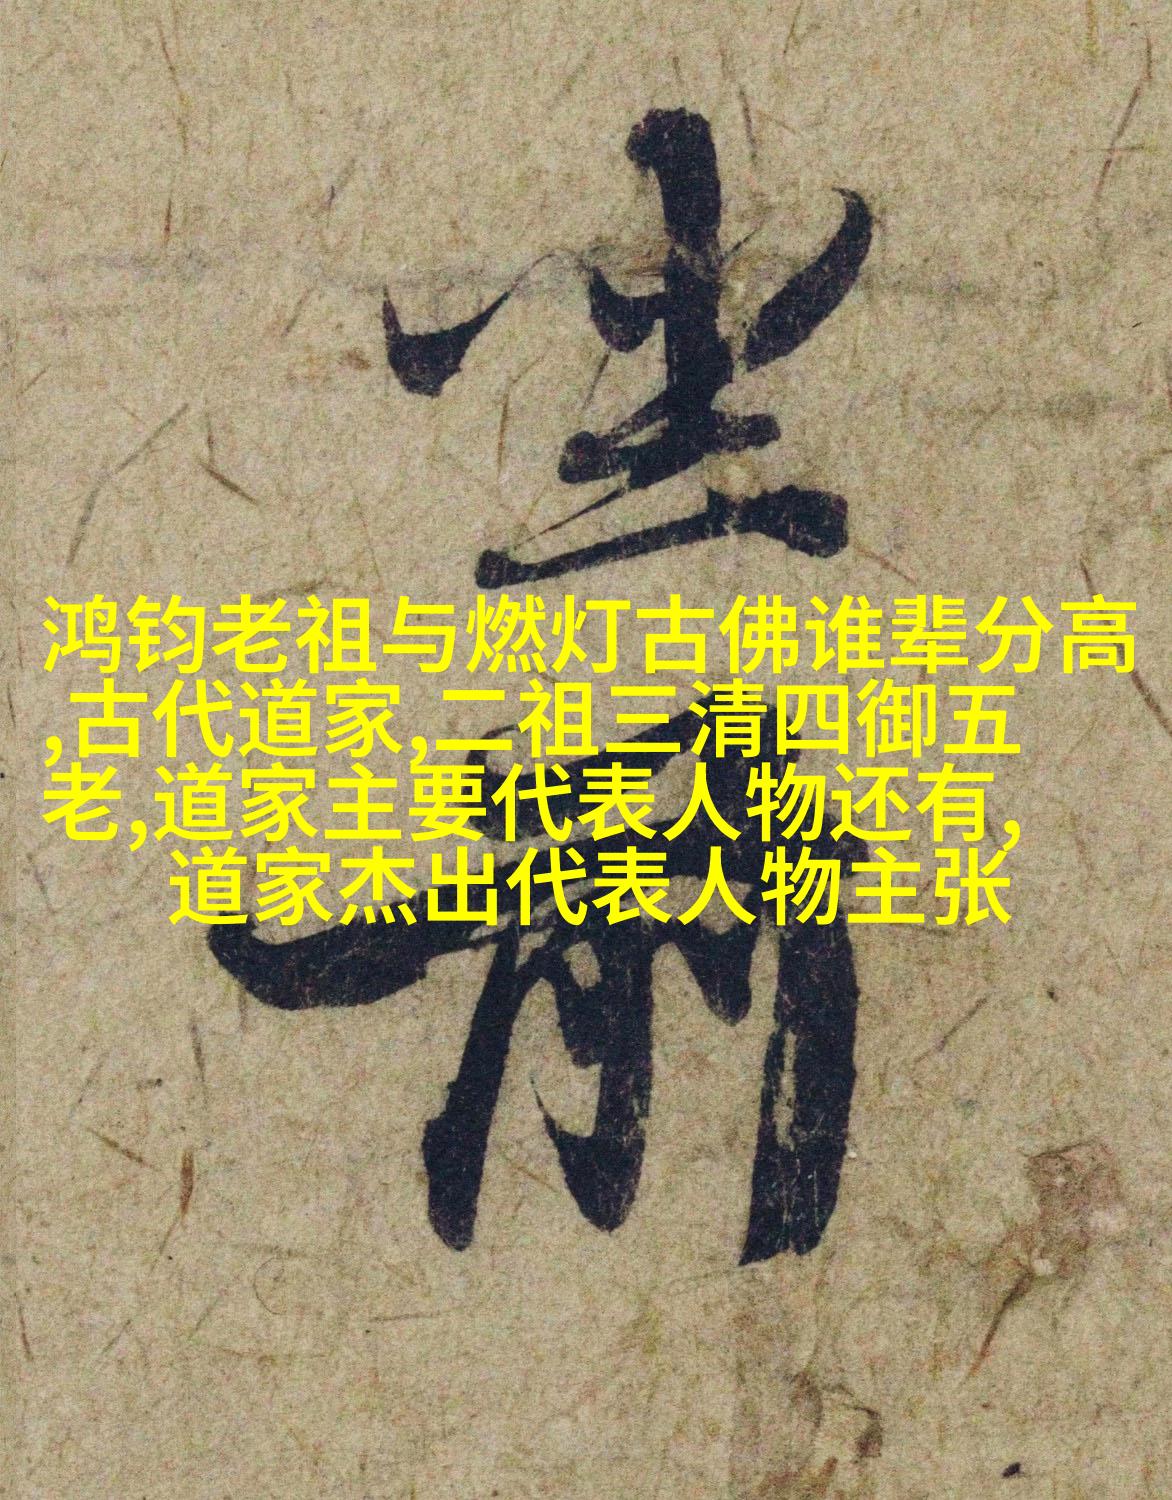 鸿钧老祖与燃灯古佛谁辈分高
,古代道家,二祖三清四御五
老,道家主要代表人物还有,
道家杰出代表人物主张